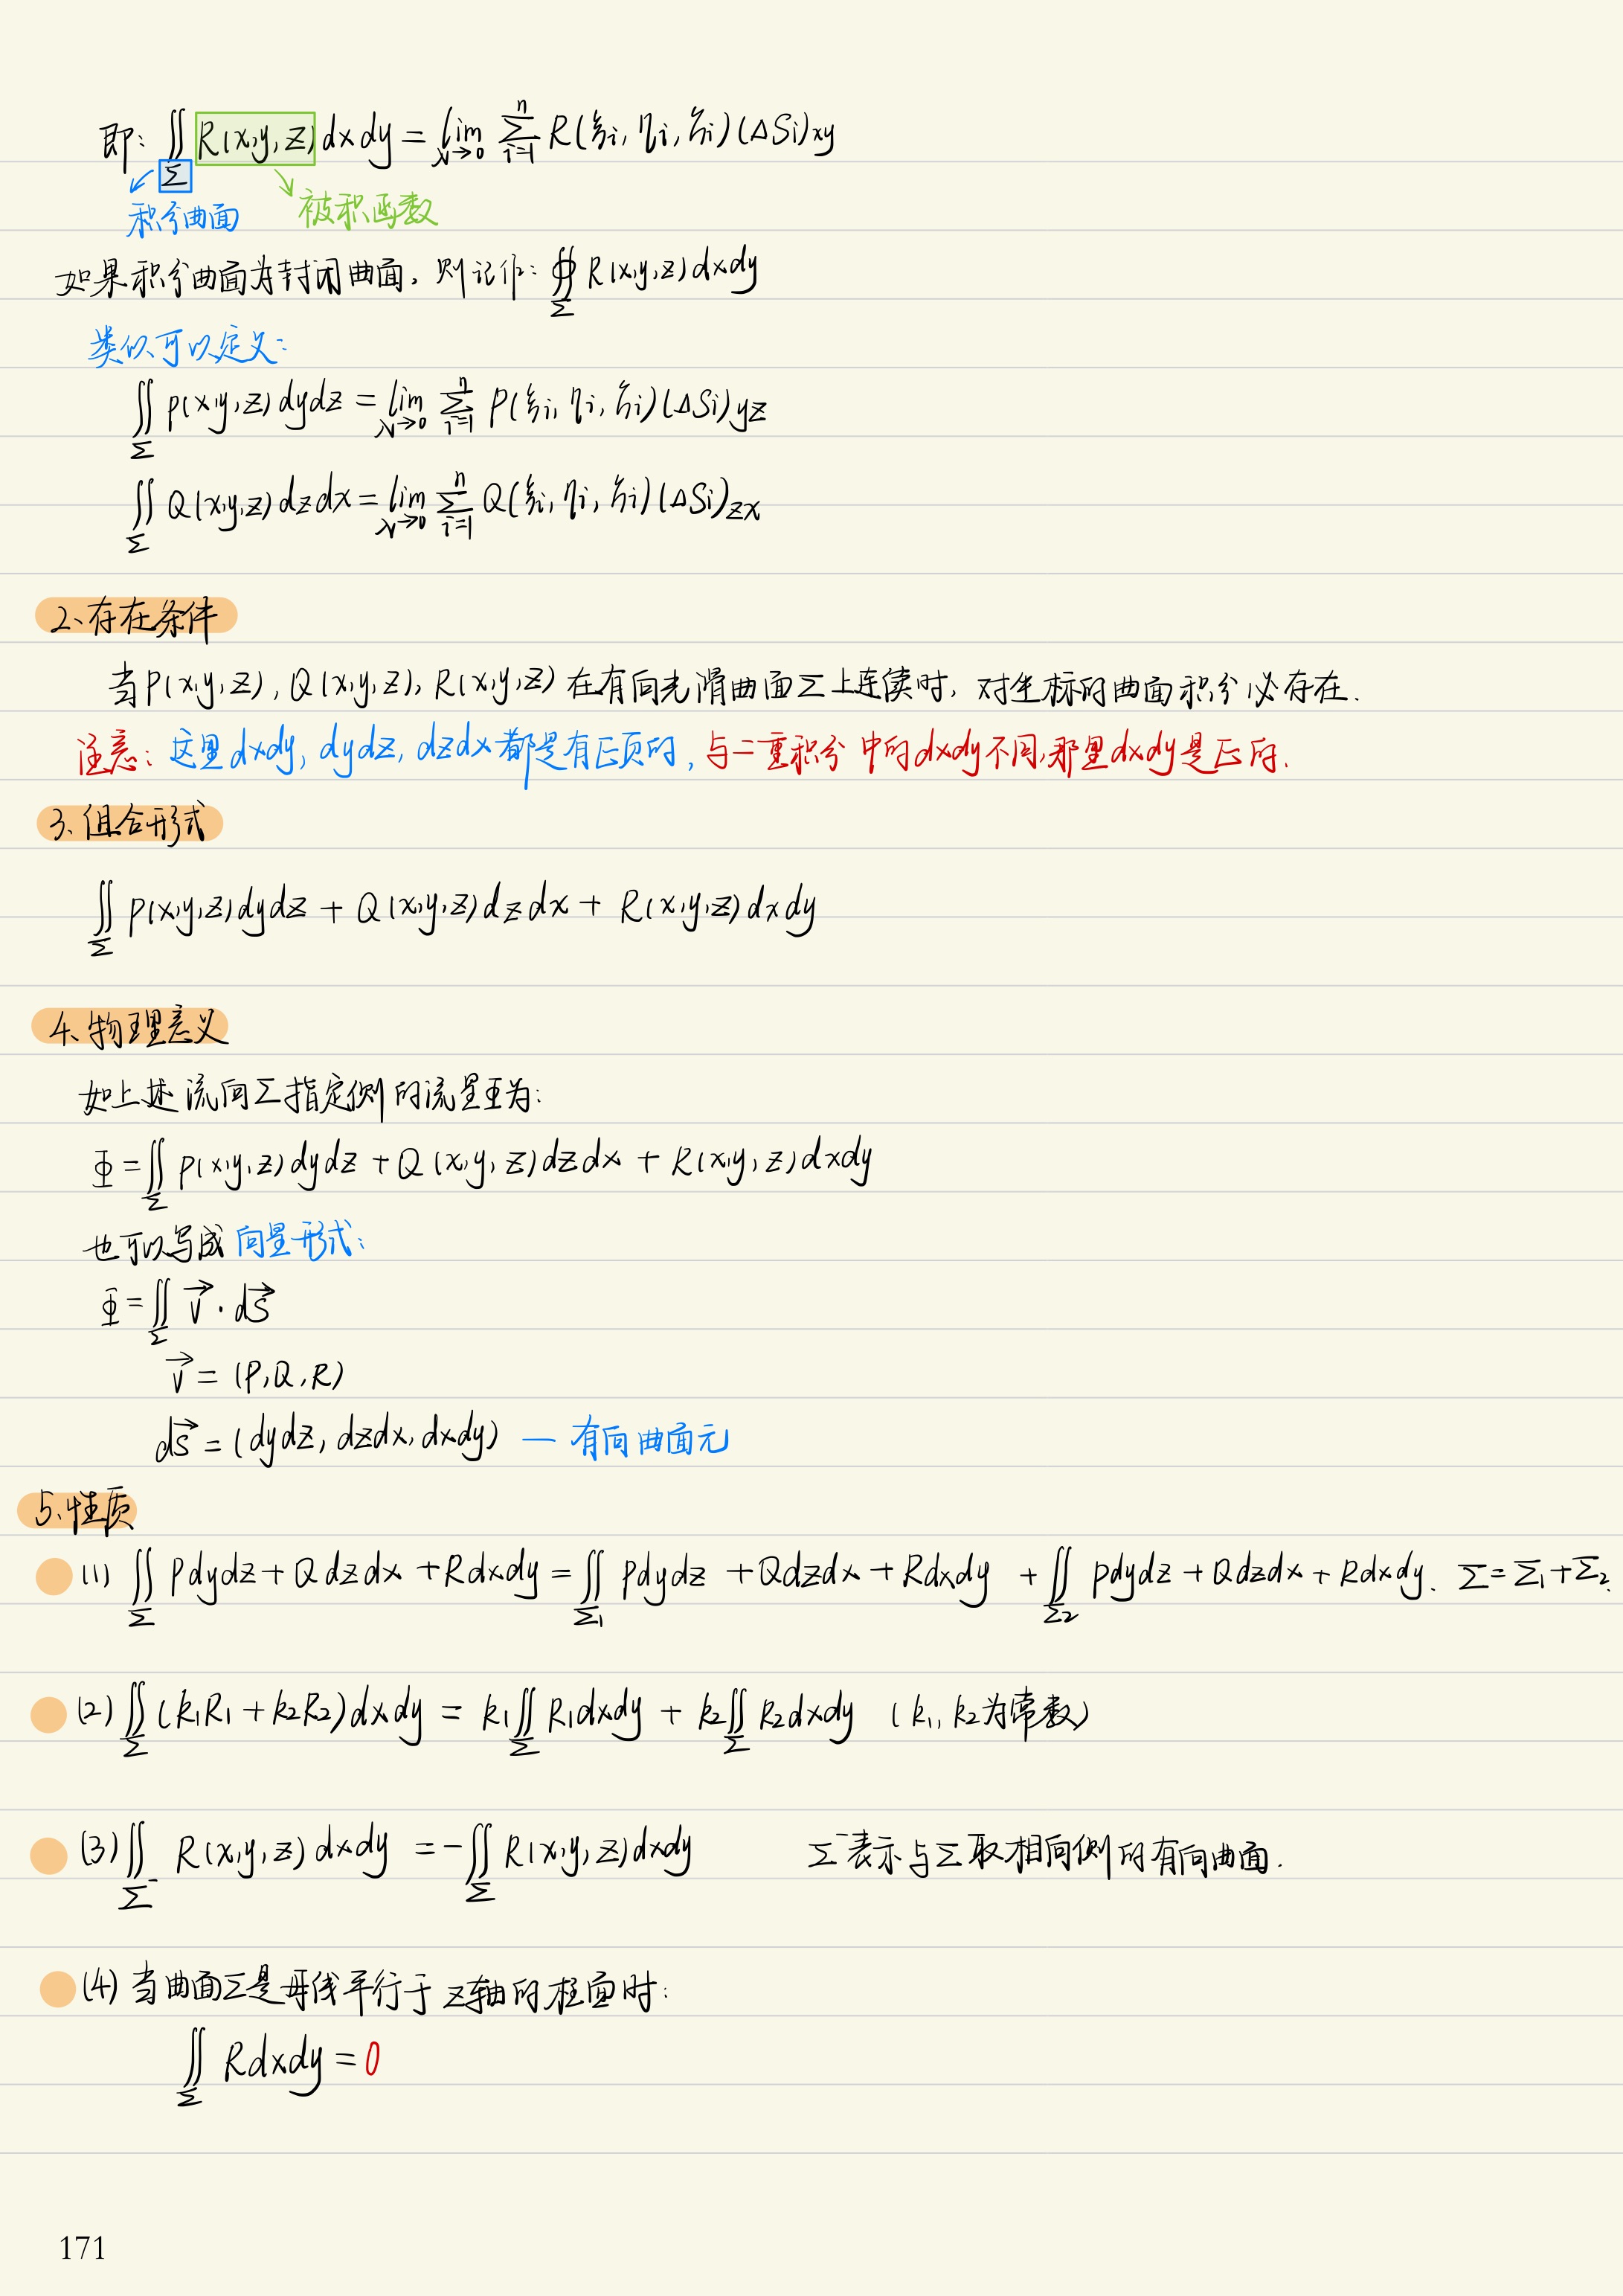 即: ∬_Σ R(x,y,z)dxdy = lim_{λ→0} Σ_{i=1}^{n} R(ξi, ηi, ζi)(ΔSi)xy
积分曲面 被积函数
如果积分曲面为封闭曲面, 则记作: ∯_Σ R(x,y,z)dxdy
类似可以定义:
∬_Σ P(x,y,z)dydz = lim_{λ→0} Σ_{i=1}^{n} P(ξi, ηi, ζi)(ΔSi)yz
∬_Σ Q(x,y,z)dzdx = lim_{λ→0} Σ_{i=1}^{n} Q(ξi, ηi, ζi)(ΔSi)zx
2、存在条件
当P(x,y,z), Q(x,y,z), R(x,y,z)在有向光滑曲面Σ上连续时, 对坐标的曲面积分必存在.
注意: 这里dxdy, dydz, dzdx都是有正负的, 与二重积分中的dxdy不同,那里dxdy是正的.
3、组合形式
∬_Σ P(x,y,z)dydz + Q(x,y,z)dzdx + R(x,y,z)dxdy
4、物理意义
如上述流向Σ指定侧的流量Φ为:
Φ=∬_Σ P(x,y,z)dydz + Q(x,y,z)dzdx + R(x,y,z)dxdy
也可以写成向量形式:
Φ=∬_Σ v⃗ · dS⃗
v⃗ = (P,Q,R)
dS⃗ = (dydz, dzdx, dxdy) — 有向曲面元
5、性质
(1) ∬_Σ Pdydz + Qdzdx + Rdxdy = ∬_Σ1 Pdydz + Qdzdx + Rdxdy + ∬_Σ2 Pdydz + Qdzdx + Rdxdy. Σ=Σ1+Σ2.
(2) ∬_Σ (k1R1 + k2R2)dxdy = k1∬_Σ R1dxdy + k2∬_Σ R2dxdy (k1, k2为常数)
(3) ∬_Σ⁻ R(x,y,z)dxdy = -∬_Σ R(x,y,z)dxdy Σ⁻表示与Σ取相向侧的有向曲面.
(4) 当曲面Σ是母线平行于z轴的柱面时:
∬_Σ Rdxdy = 0
171